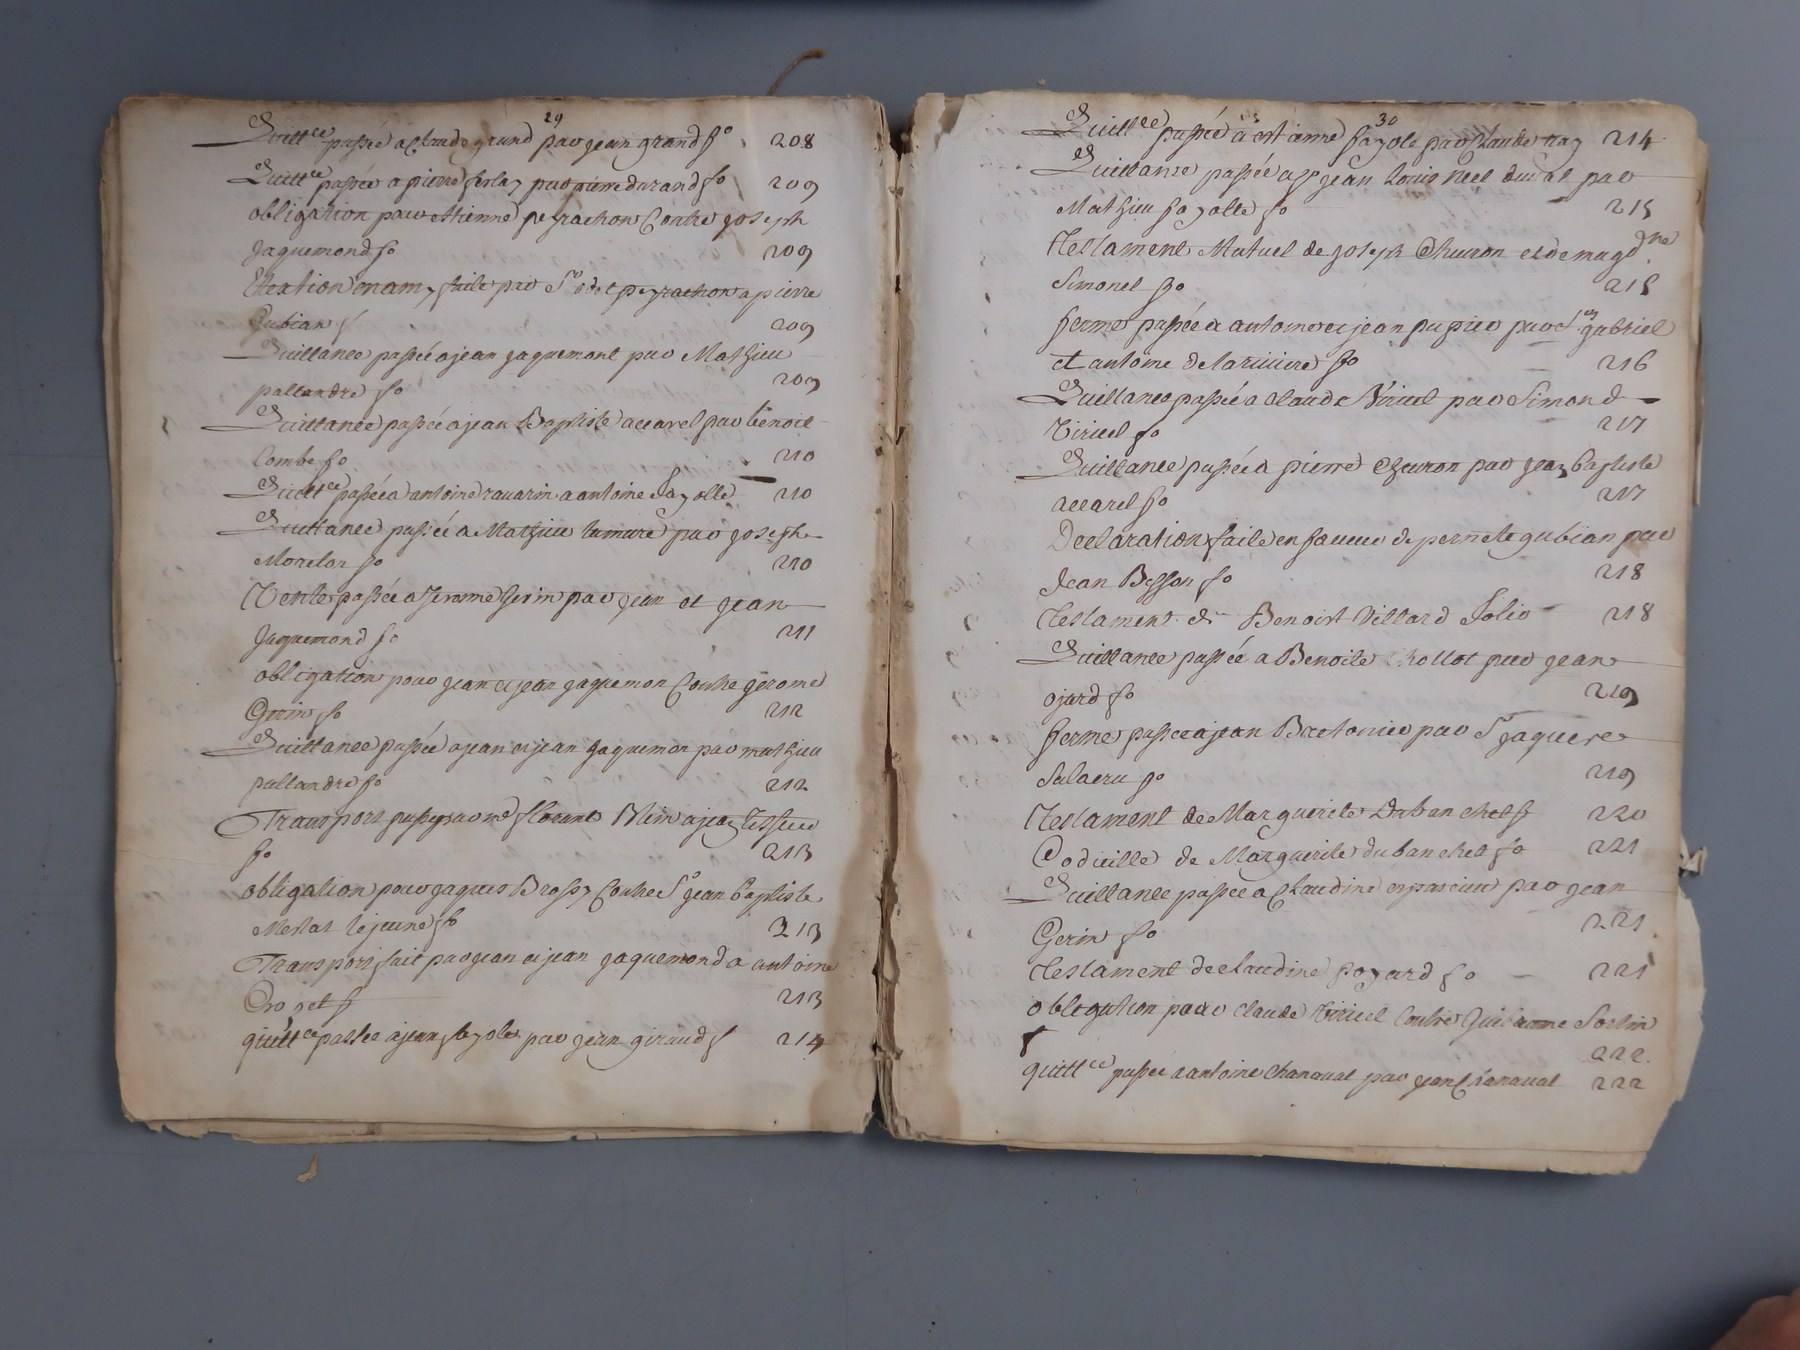 29
Quittce passée a Claude grand par jean grand fo 208
Quittce passée a pierre ferlay par pierre durand fo 209
obligation pour Etienne peyrachon Contre joseph
Jaquemond fo 209
Election en amy faite par Sr odet peyrachon a pierre
Gubian f 209
Quittance passée a jean jaquemont par Mathieu
pallandre fo 209
Quittance passée a jean Baptiste accarel par benoit
Combe fo 210
Quittce passée a antoine ravarin a antoine fayolle 210
Quittance passée a Mathieu lamure par joseph
Morelon fo 210
Vente passée a Jerome Gerin par jean et jean
Jaquemond fo 211
obligation pour jean et jean jaquemon Contre gerome
Gerin fo 212
Quittance passée a jean et jean jaquemon par mathieu
pallandre fo 212
Transport passé par me florant Blein a jean Tisseur
fo 213
obligation pour jaques Brossy Contre Sr jean baptiste
Merlat le jeune fo 213
Transport fait par jean et jean jaquemond a antoine
Crozet f 213
quittce passée a jean fayole par jean giraud f 214
30
Quittce passée a estienne fayole par Claude nay 214
Quittance passée a Sr jean Louis Neel duval par
Mathieu fayolle fo 215
Testament Mutuel de joseph Chuiron et de magdne
Simonet fo 215
ferme passée a antoine et jean papier par Srs gabriel
et antoine delariviere fo 216
Quittance passée a claude Viricel par Simond
Viricel fo 217
Quittance passée a pierre Cheuron par jean baptiste
accarel fo 217
Declaration faite en faveur de pernete gubian par
Jean Besson fo 218
Testament de Benoist Villard folio 218
Quittance passée a Benoite Chollot par jean
ojard fo 219
ferme passée a jean Bretonier par Sr jaques
Salacru fo 219
Testament de Marguerite Dubanchet f 220
Codicille de Marguerite dubanchet fo 221
Quittance passée a Claudine par jean
Gerin fo 221
Testament de claudine poyard fo 221
obligation pour claude Viricel Contre Guillaume Sorlin
f 222
quittce passée a antoine Chanaval par jean Chanaval 222